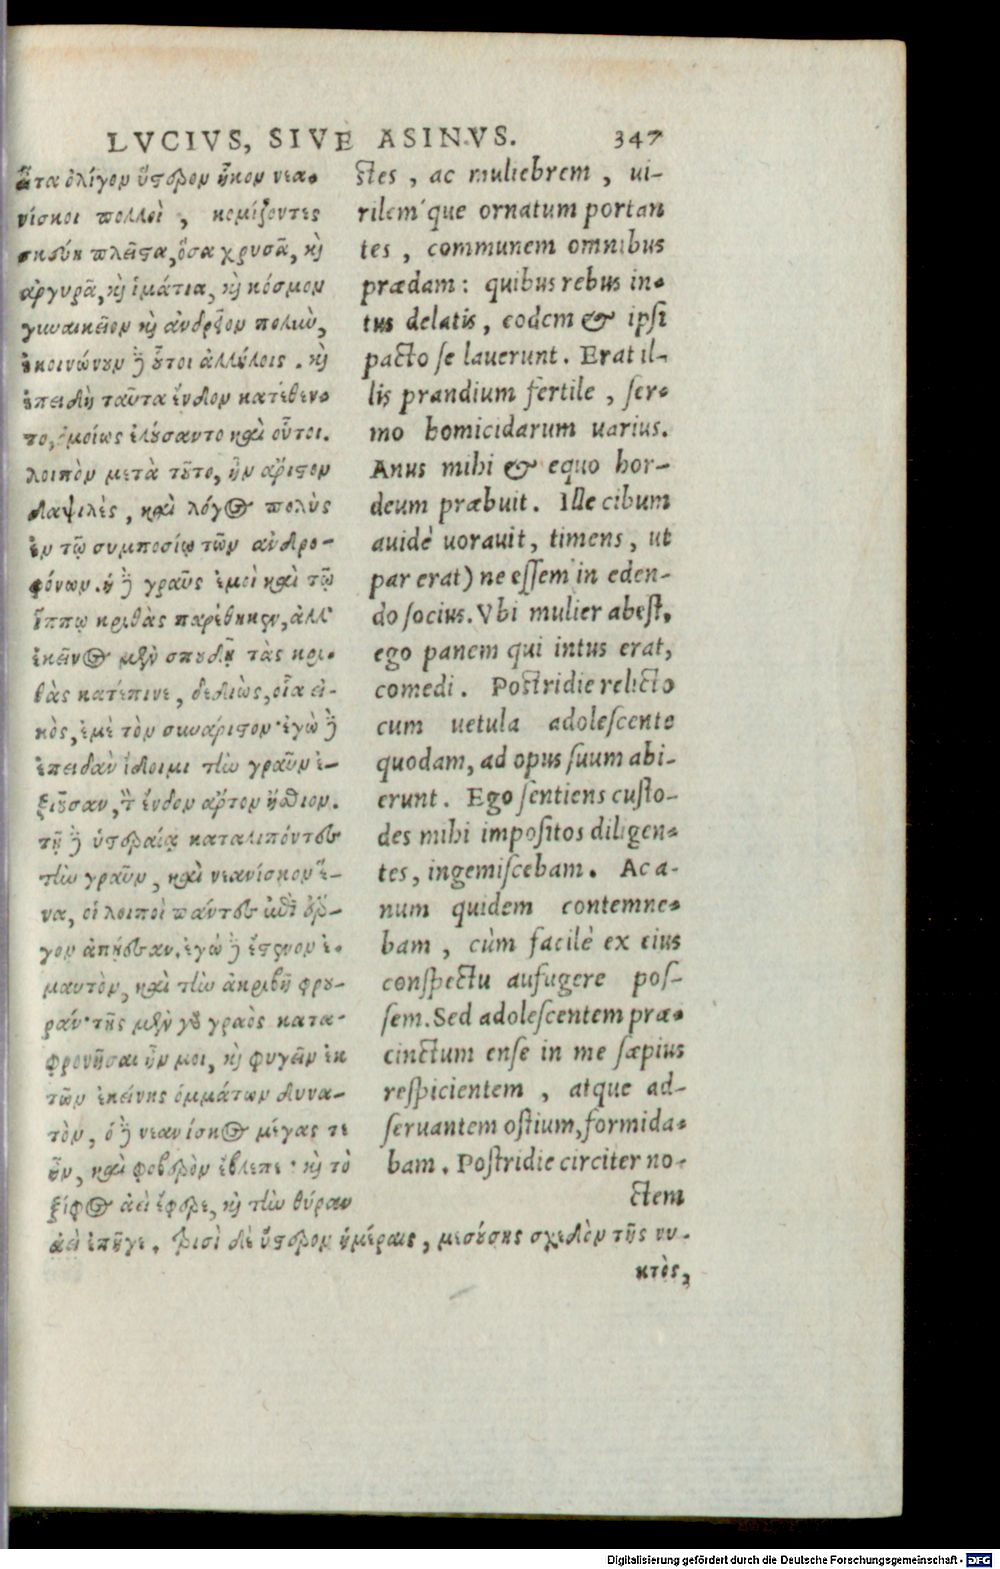 LVCIVS, SIVE ASINVS. 347
εἶτα ὀλίγον ὕστερον ἧκον νεα-
νίσκοι πολλοὶ, κομίζοντες
σκεύη πλεῖστα, ὅσα χρυσᾶ, καὶ
ἀργυρᾶ, καὶ ἱμάτια, καὶ κόσμον
γυναικεῖον καὶ ἀνδρεῖον πολιὼ,
ἐκοινώνουν δὲ οὗτοι ἀλλήλοις. καὶ
ἐπειδὴ ταῦτα ἔνδον κατέθεν-
το, ὁμοίως ἐλούσαντο καὶ οὗτοι.
λοιπὸν μετὰ τοῦτο, ἦν ἄριστον
δαψιλὲς, καὶ λόγος πολὺς
ἐν τῷ συμποσίῳ τῶν ἀνδρο-
φόνων. ἡ δὲ γραῦς ἐμοὶ καὶ τῷ
ἵππῳ κριθὰς παρέθηκεν, ἀλλ'
ἐκεῖνος μὲν σπουδῇ τὰς κρι-
θὰς κατέπινε, δεδιὼς, οἷα εἰ-
κὸς, ἐμὲ τὸν συνάριστον· ἐγὼ δὲ
ἐπειδὰν ἴδοιμι τὴν γραῦν ἐ-
ξιοῦσαν, τὸ ἔνδον ἄρτον ἤσθιον.
τῇ δὲ ὑστεραίᾳ καταλιπόντες
τὴν γραῦν, καὶ νεανίσκον ἕ-
να, οἱ λοιποὶ πάντες ἐπὶ ἔρ-
γον ἀπῄεσαν. ἐγὼ δὲ ἔστενον ἐ-
μαυτὸν, καὶ τὴν ἀκριβῆ φρου-
ράν· τῆς μὲν γὰρ γραὸς κατα-
φρονῆσαι ἦν μοι, καὶ φυγεῖν ἐκ
τῶν ἐκείνης ὀμμάτων δυνα-
τὸν, ὁ δὲ νεανίσκος μέγας τε
ἦν, καὶ φοβερὸν ἔβλεπε· καὶ τὸ
ξίφος ἀεὶ ἔφερε, καὶ τὴν θύραν
ἀεὶ ἐπῆγε. τρισὶ δὲ ὕστερον ἡμέραις, μεσούσης σχεδὸν τῆς νυ-
κτὸς,
ctes, ac muliebrem, ui-
rilem que ornatum portan
tes, communem omnibus
prædam: quibus rebus in-
tus delatis, eodem & ipsi
pacto se lauerunt. Erat il-
lis prandium fertile, ser-
mo homicidarum uarius.
Anus mihi & equo hor-
deum præbuit. Ille cibum
auidè uorauit, timens, ut
par erat) ne essem in eden-
do socius. Vbi mulier abest,
ego panem qui intus erat,
comedi. Postridie relicto
cum uetula adolescente
quodam, ad opus suum abi-
erunt. Ego sentiens custo-
des mihi impositos diligen-
tes, ingemiscebam. Ac a-
num quidem contemne-
bam, cùm facilè ex eius
conspectu aufugere pos-
sem. Sed adolescentem præ-
cinctum ense in me sæpius
respicientem, atque ad-
seruantem ostium, formida-
bam. Postridie circiter no-
ctem
Digitalisierung gefördert durch die Deutsche Forschungsgemeinschaft - DFG